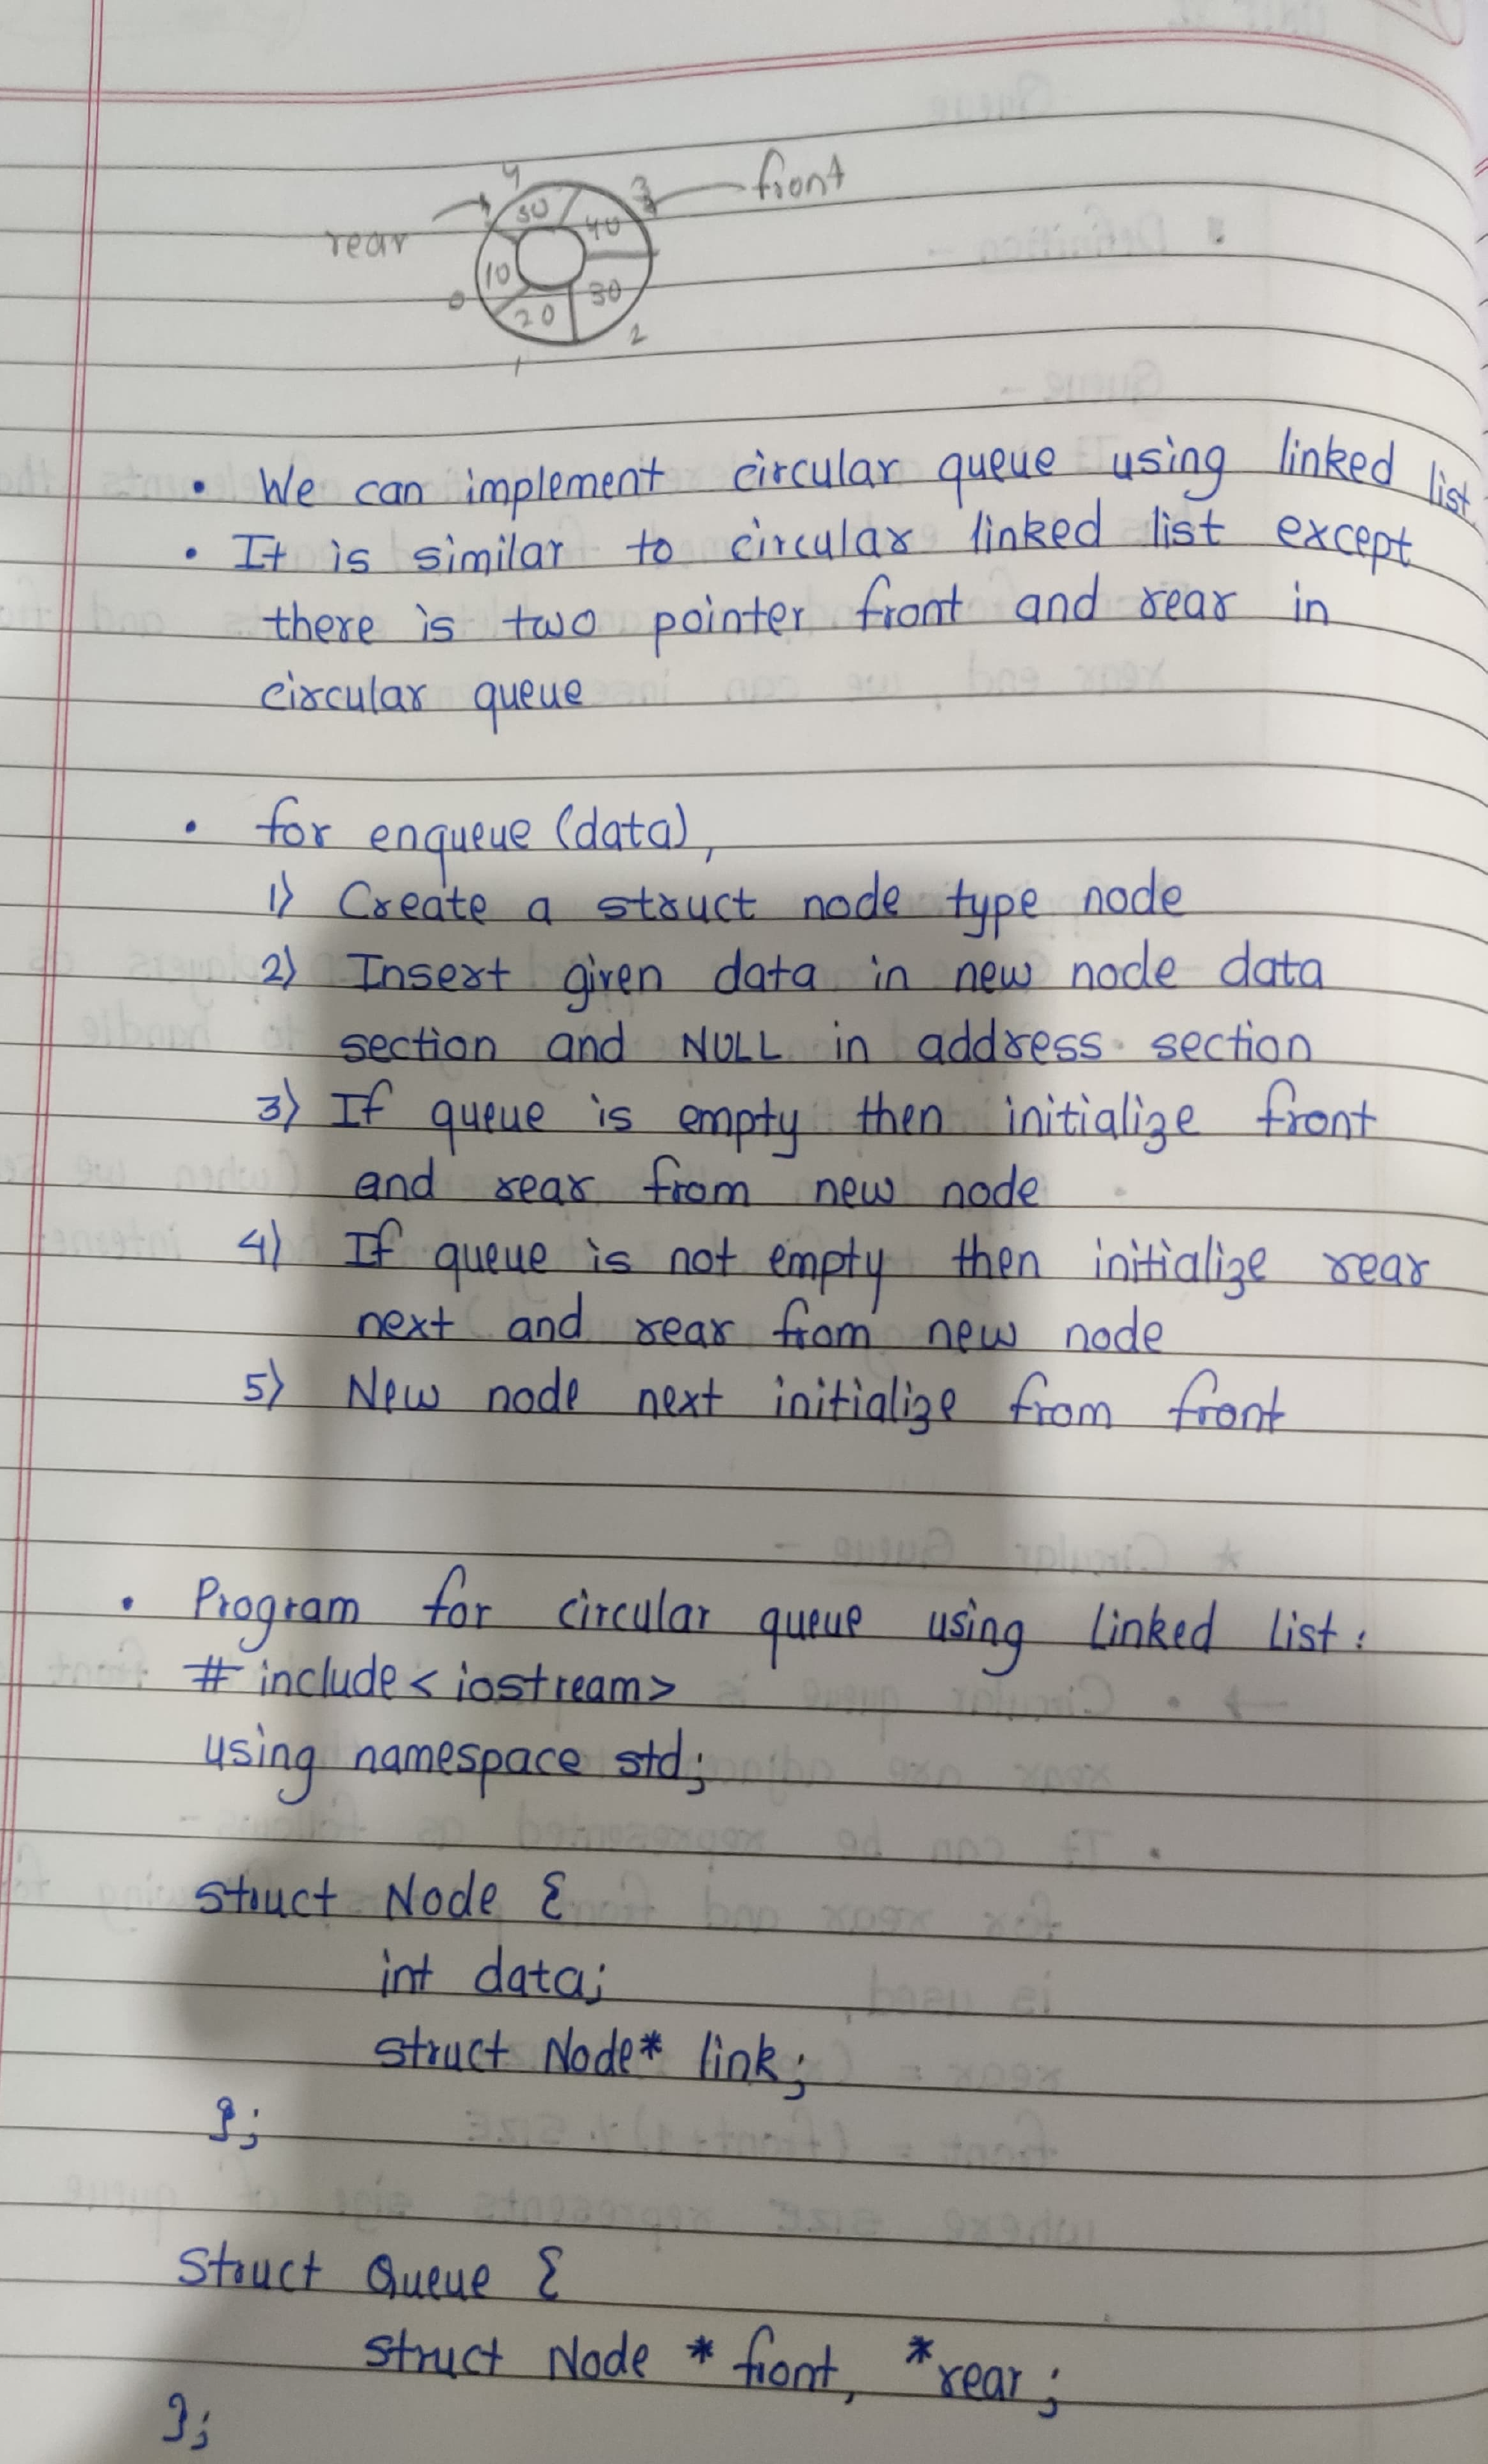 4
3
front
rear
50
40
10
30
0
20
2
1
• We can implement circular queue using linked list
• It is similar to circular linked list except
there is two pointer front and rear in
circular queue
• for enqueue (data),
1) Create a struct node type node
2) Insert given data in new node data
section and NULL in address section
3) If queue is empty then initialize front
and rear from new node
4) If queue is not empty then initialize rear
next and rear from new node
5) New node next initialize from front
• Program for circular queue using Linked List:
# include < iostream>
using namespace std;
struct Node {
int data;
struct Node* link;
};
Struct Queue {
struct Node * front, *rear;
};